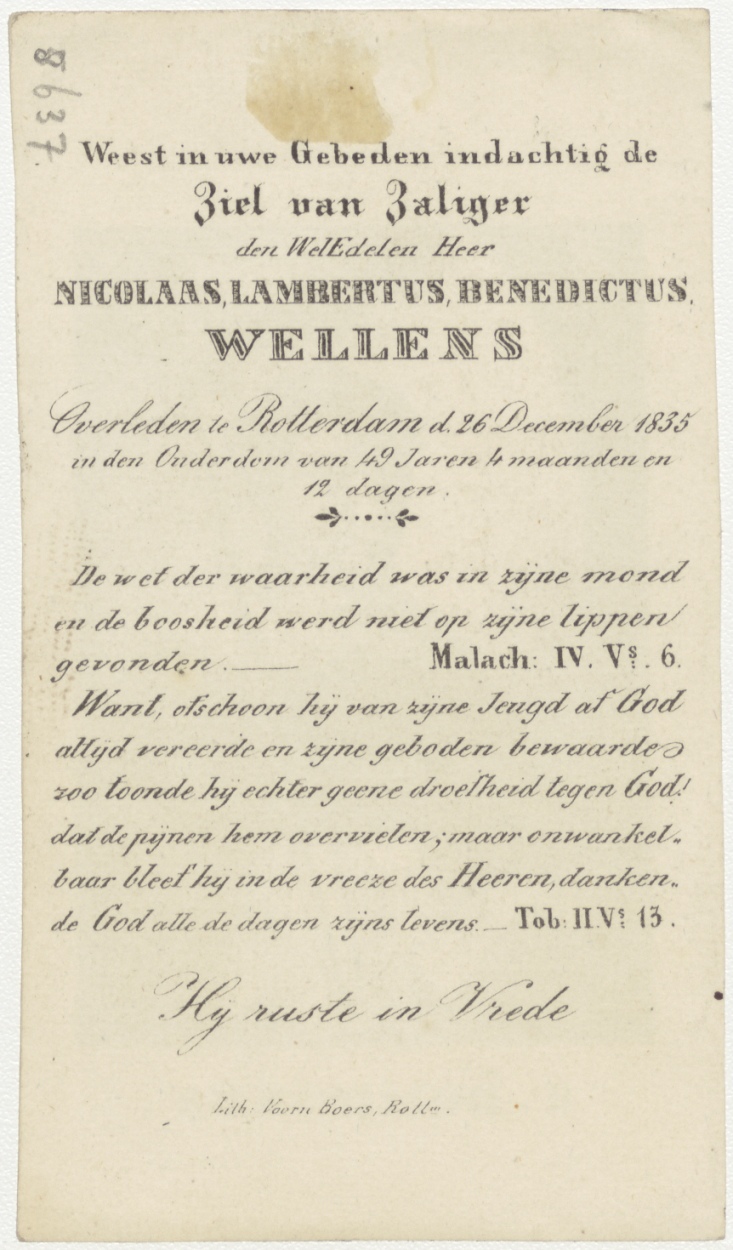 8637
Weest in uwe Gebeden indachtig de
Ziel van Zaliger
den WelEdelen Heer
NICOLAAS, LAMBERTUS, BENEDICTUS,
WELLENS
Overleden te Rotterdam d. 26 December 1835
in den Ouderdom van 49 Jaren 4 maanden en
12 dagen.
De wet der waarheid was in zijne mond
en de boosheid werd niet op zijne lippen
gevonden. — Malach: IV. Vs. 6.
Want, ofschoon hij van zijne Jeugd af God
altijd vereerde en zijne geboden bewaarde
zoo toonde hij echter geene droefheid tegen God!
dat de pijnen hem overvielen; maar onwankel„
baar bleef hij in de vreeze des Heeren, danken„
de God alle de dagen zijns levens. — Tob: II. Vs. 13.
Hij ruste in Vrede
Lith: Voorn Boers, Rottm.